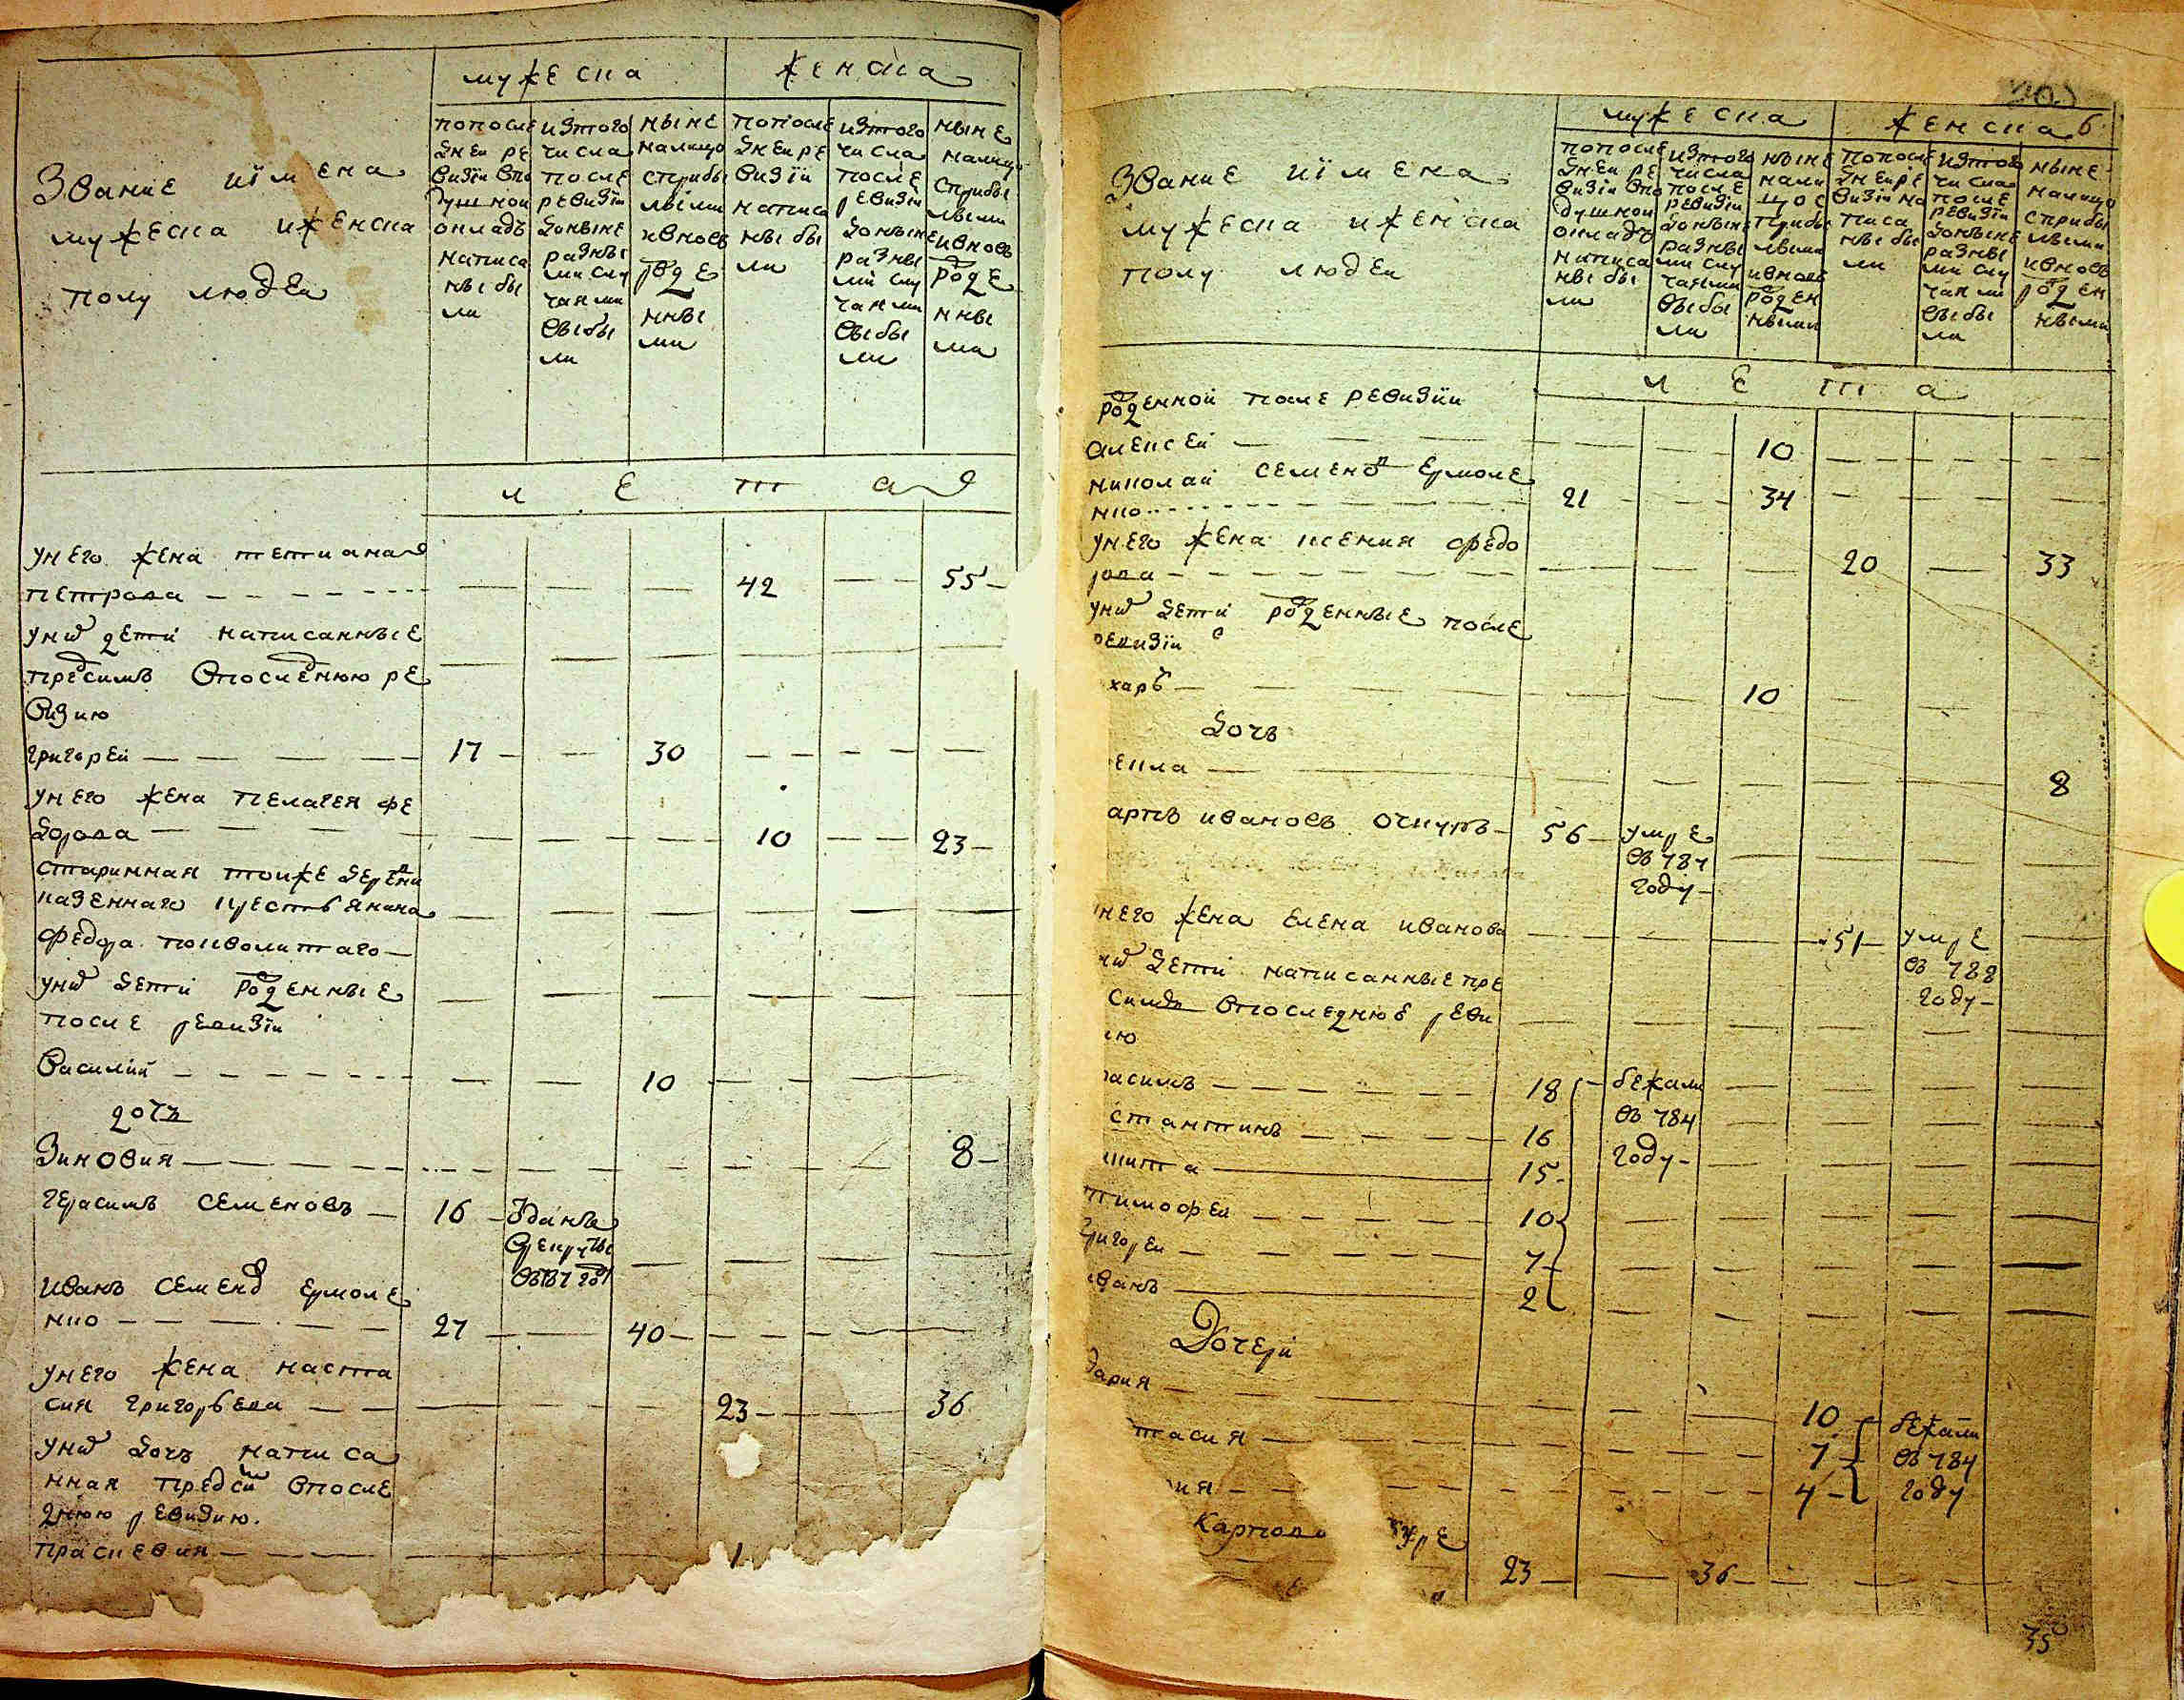 мужеска
женска
Звание иімена
мужеска иженска
полу людеи
попосле
днеи ре
визіи впо
душнои
окладъ
написа
ны бы
ли
изтого
числа
после
ревизіи
доныне
разны
ми слу
чаями
выбы
ли
ныне
налицо
сприбы
лыми
ивновь
рожде
нны
ми
попосле
днеи ре
визіи
написа
ны бы
ли
изтого
числа
после
ревизіи
доныне
разны
ми слу
чаями
выбы
ли
ныне
налицо
сприбы
лыми
ивновь
рожде
нны
ми
лета
унего жена тетиана
петрова 42 55
уних дети написанные
предсимъ впоследнюю ре
визию
григореи 17 30
унего жена пелагея фе
дорова 10 23
старинная тоиже дервни
казеннаго крестьянина
федора
уних дети рожденные
после ревизіи
Василии 10
дочъ
Зиновия 8
герасимъ семеновъ 16 зданъ
врекруты
въ год
иванъ семенов ермоле
нко 27 40
унего жена наста
сия григорьева 23 36
уних дочъ написа
нная предсим впосле
днюю ревизию.
прасковия 1
6
мужеска
женска
Звание иімена
мужеска иженска
полу людеи
попосле
днеи ре
визіи впо
душнои
окладъ
написа
ны бы
ли
изтого
числа
после
ревизіи
доныне
разны
ми слу
чаями
выбы
ли
ныне
нали
цо с
прибы
лыми
ивновь
рожден
ными
попосле
днеи ре
визіи на
писа
ны бы
ли
изтого
числа
после
ревизіи
доныне
разны
ми слу
чаями
выбы
ли
ныне
налицо
сприбы
лыми
ивновь
рожден
ными
лета
рожденнои после ревизіи
алексеи 10
николаи семенов ермоле
нко 21 34
унего жена ксения федо
рова 20 33
уних дети рожденные после
ревизіи
харъ 10
дочъ
екла 8
арпъ ивановъ 56 умре
въ 787
году
него жена елена иванова 51 умре
въ 788
году
их дети написанные пре
симъ впоследнюю реви
ию
расимъ 18 бежали
въ 784
стантинъ 16 году
икита 15
тимофеи 10
григореи 7
иванъ 2
Дочери
дария 10 бежали
тасия 7 въ 784
ия 4 году
Карпова
23 36
35